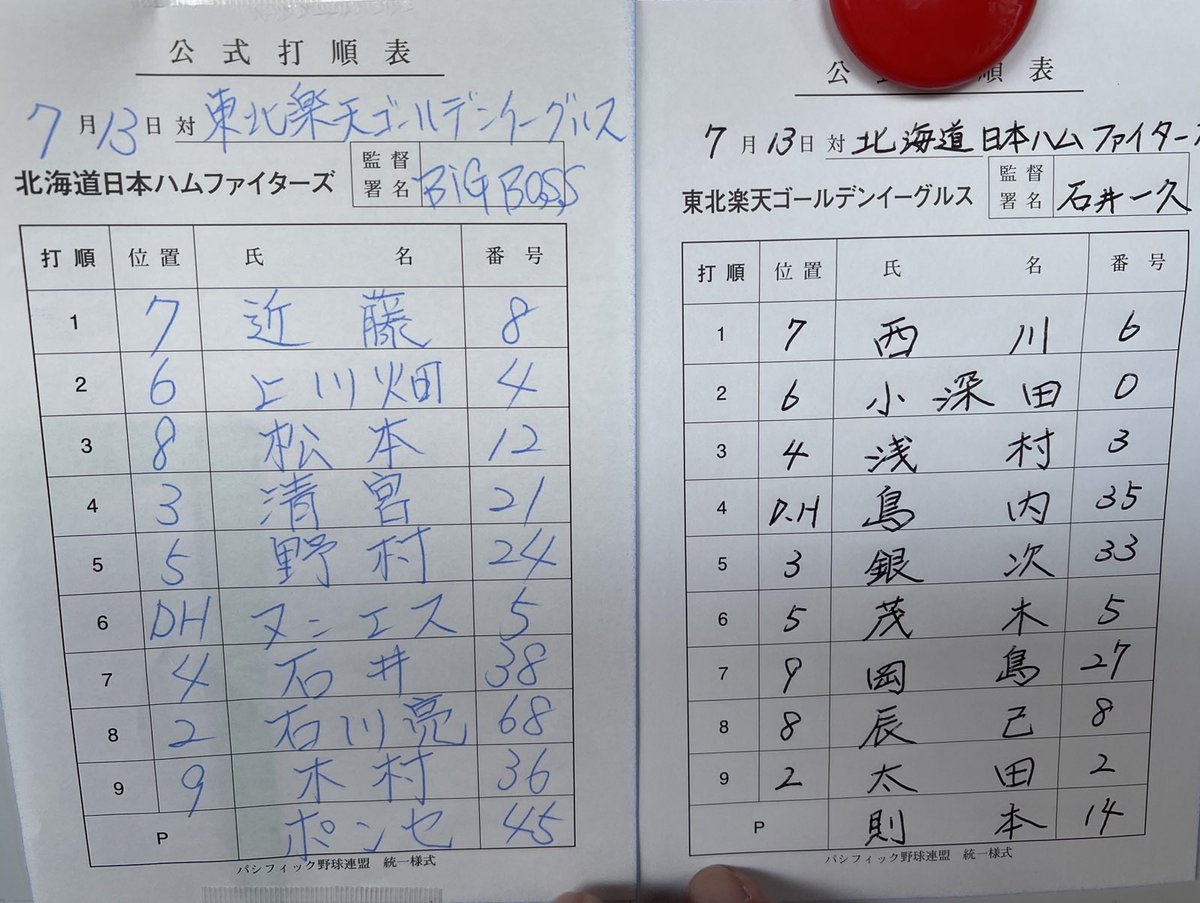 公式打順表
7月13日 対 東北楽天ゴールデンイーグルス
北海道日本ハムファイターズ 監督署名 BIG BOSS
打順 位置 氏名 番号
1 7 近藤 8
2 6 上川畑 4
3 8 松本 12
4 3 清宮 21
5 5 野村 24
6 DH ヌニエス 5
7 4 石井 38
8 2 石川亮 68
9 9 木村 36
P ポンセ 45
パシフィック野球連盟 統一様式
公式 順表
7月13日 対 北海道日本ハムファイターズ
東北楽天ゴールデンイーグルス 監督署名 石井一久
打順 位置 氏名 番号
1 7 西川 6
2 6 小深田 0
3 4 浅村 3
4 D.H 島内 35
5 3 銀次 33
6 5 茂木 5
7 9 岡島 27
8 8 辰己 8
9 2 太田 2
P 則本 14
パシフィック野球連盟 統一様式